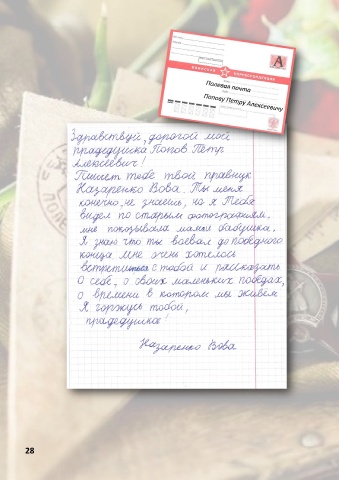 Полевая почта
Попову Петру Алексеевичу
А
Здравствуй, дорогой мой
прадедушка Попов Пётр
Алексеевич!
Пишет тебе твой правнук
Назаренко Вова. Ты меня
конечно, не знаешь, но я тебя
видел по старым фотографиям.
мне показывала мамы бабушка.
Я знаю что ты воевал до победного
конца мне очень хотелось
встретиться с тобой и рассказать
о себе, о своих маленьких победах,
о времени в котором мы живём
Я горжусь тобой,
прадедушка!
Назаренко Вова
28